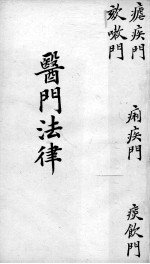 瘧疾門
欬嗽門
痢疾門
痰飲門
醫門法律